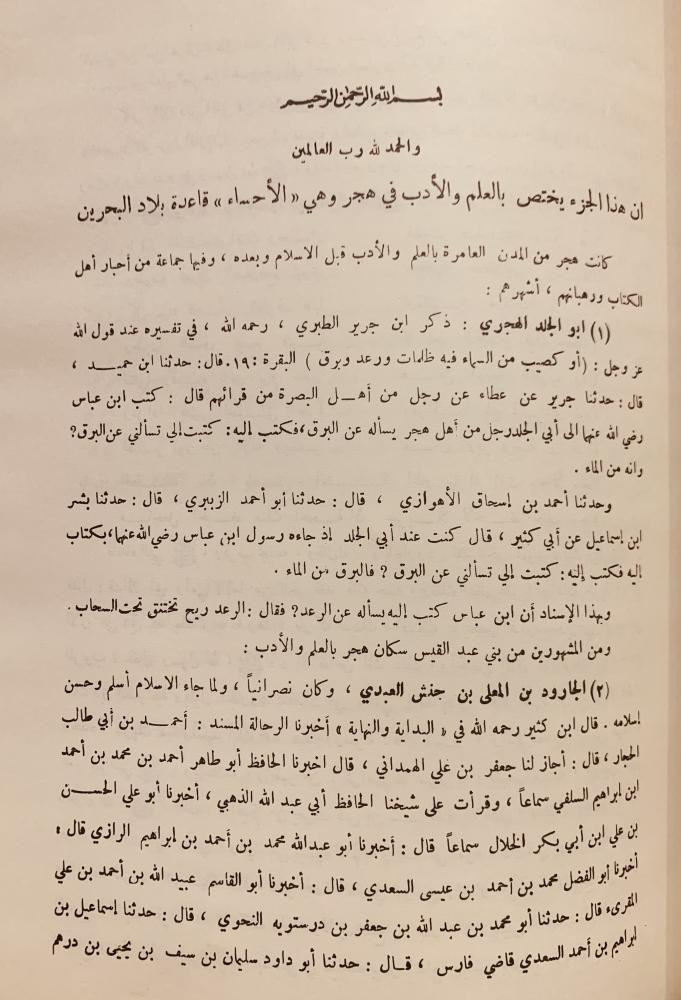 بسم الله الرحمن الرحيم
والحمد لله رب العالمين
ان هذا الجزء يختص بالعلم والأدب في هجر وهي «الأحساء» قاعدة بلاد البحرين
كانت هجر من المدن العامرة بالعلم والأدب قبل الاسلام وبعده ، وفيها جماعة من أحبار أهل
الكتاب ورهبانهم ، أشهرهم :
(١) ابو الجلد الهجري : ذكر ابن جرير الطبري ، رحمه الله ، في تفسيره عند قول الله
عز وجل : (أو كصيب من السماء فيه ظلمات ورعد وبرق ) البقرة :١٩. قال: حدثنا ابن حميد ،
قال : حدثنا جرير عن عطاء عن رجل من أهل البصرة من قرائهم قال : كتب ابن عباس
رضي الله عنهما الى أبي الجلد رجل من أهل هجر يسأله عن البرق ، فكتب اليه : كتبت إلي تسألني عن البرق ?
وانه من الماء .
وحدثنا أحمد بن إسحاق الأهوازي ، قال : حدثنا أبو أحمد الزبيري ، قال : حدثنا بشر
ابن إسماعيل عن أبي كثير ، قال كنت عند أبي الجلد إذ جاءه رسول ابن عباس رضي الله عنهما ، بكتاب
إليه فكتب إليه : كتبت إلي تسألني عن البرق ? فالبرق من الماء .
وبهذا الإسناد أن ابن عباس كتب إليه يسأله عن الرعد ? فقال : الرعد ريح تختنق تحت السحاب .
ومن المشهورين من بني عبد القيس سكان هجر بالعلم والأدب :
(٢) الجارود بن المعلى بن حنش العبدي ، وكان نصرانياً ، ولما جاء الاسلام أسلم وحسن
إسلامه . قال ابن كثير رحمه الله في « البداية والنهاية » أخبرنا الرحالة المسند : أحمد بن أبي طالب
الحجار ، قال : أجاز لنا جعفر بن علي الهمداني ، قال اخبرنا الحافظ أبو طاهر أحمد بن محمد بن أحمد
ابن ابراهيم السلفي سماعاً ، وقرأت على شيخنا الحافظ أبي عبد الله الذهبي ، أخبرنا أبو علي الحسن
بن علي ابن أبي بكر الخلال سماعاً قال : أخبرنا أبو عبدالله محمد بن أحمد بن إبراهيم الرازي قال :
أخبرنا أبو الفضل محمد بن أحمد بن عيسى السعدي ، قال : أخبرنا أبو القاسم عبيد الله بن أحمد بن علي
المقرىء قال : حدثنا أبو محمد بن عبد الله بن جعفر بن درستويه النحوي ، قال : حدثنا إسماعيل بن
ابراهيم بن أحمد السعدي قاضي فارس ، قال : حدثنا أبو داود سليمان بن سيف بن يحيى بن درهم